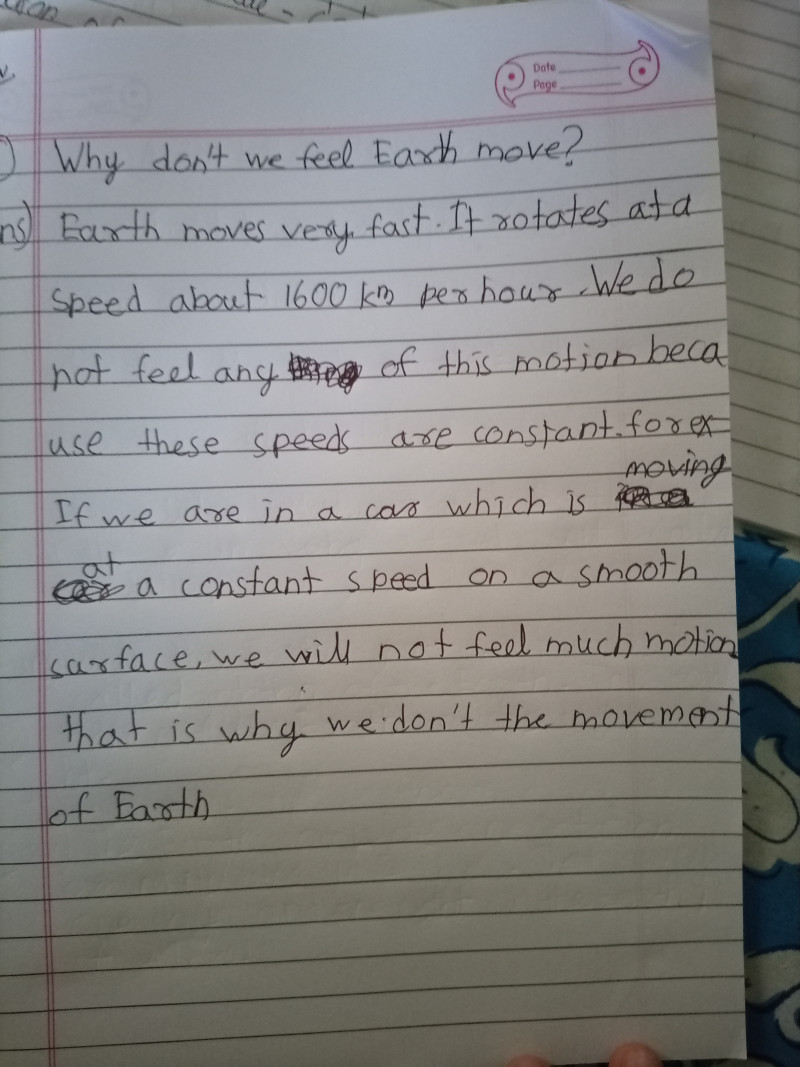 Date
Page
Why don't we feel Earth move?
ns) Earth moves very fast. It rotates at a
speed about 1600 km per hour. We do
not feel any of this motion beca
use these speeds are constant. for ex
If we are in a car which is moving
at a constant speed on a smooth
surface, we will not feel much motion
that is why we don't the movement
of Earth